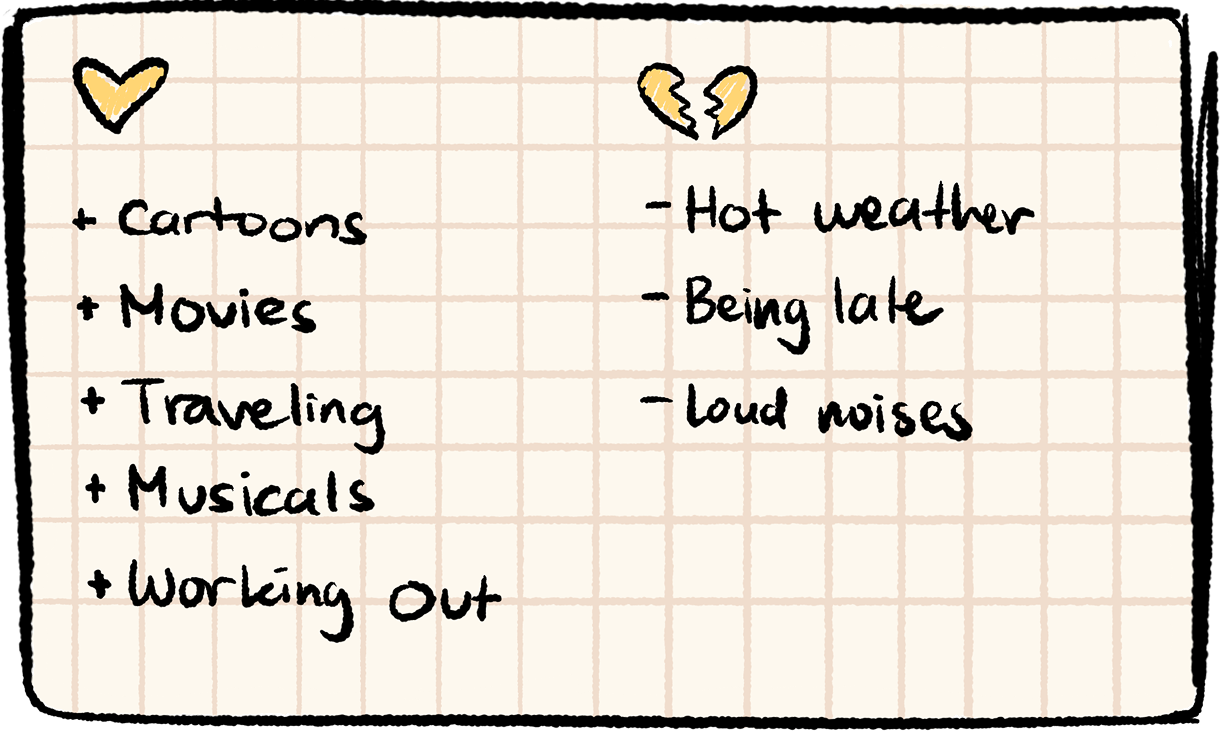 + Cartoons
+ Movies
+ Traveling
+ Musicals
+ Working Out
- Hot weather
- Being late
- Loud noises